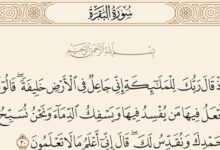 سُورَةُ البَقَرَةِ
بِسْمِ اللَّهِ الرَّحْمَٰنِ الرَّحِيمِ
ذْ قَالَ رَبُّكَ لِلْمَلَٰٓئِكَةِ إِنِّي جَاعِلٌ فِي ٱلْأَرْضِ خَلِيفَةً ۖ قَالُوٓ
تَجْعَلُ فِيهَا مَن يُفْسِدُ فِيهَا وَيَسْفِكُ ٱلدِّمَآءَ وَنَحْنُ نُسَبِّحُ
حَمْدِكَ وَنُقَدِّسُ لَكَ ۖ قَالَ إِنِّيٓ أَعْلَمُ مَا لَا تَعْلَمُونَ ٣٠